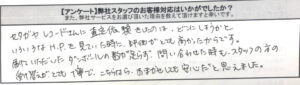 【アンケート】弊社スタッフのお客様対応はいかがでしたか？
また、弊社サービスをお選び頂いた理由を教えて頂けますと幸いです。
セタガヤレコードさんに査定依頼したのは、どこにしようかと
いろいろな H.P. を見ていた時に、評価がとても高かったからです。
届けいただいたダンボールの数が足らず、問い合わせた時もスタッフの方の
対応がとても丁寧で、こちらなら、おまかせしても安心だと思えました。